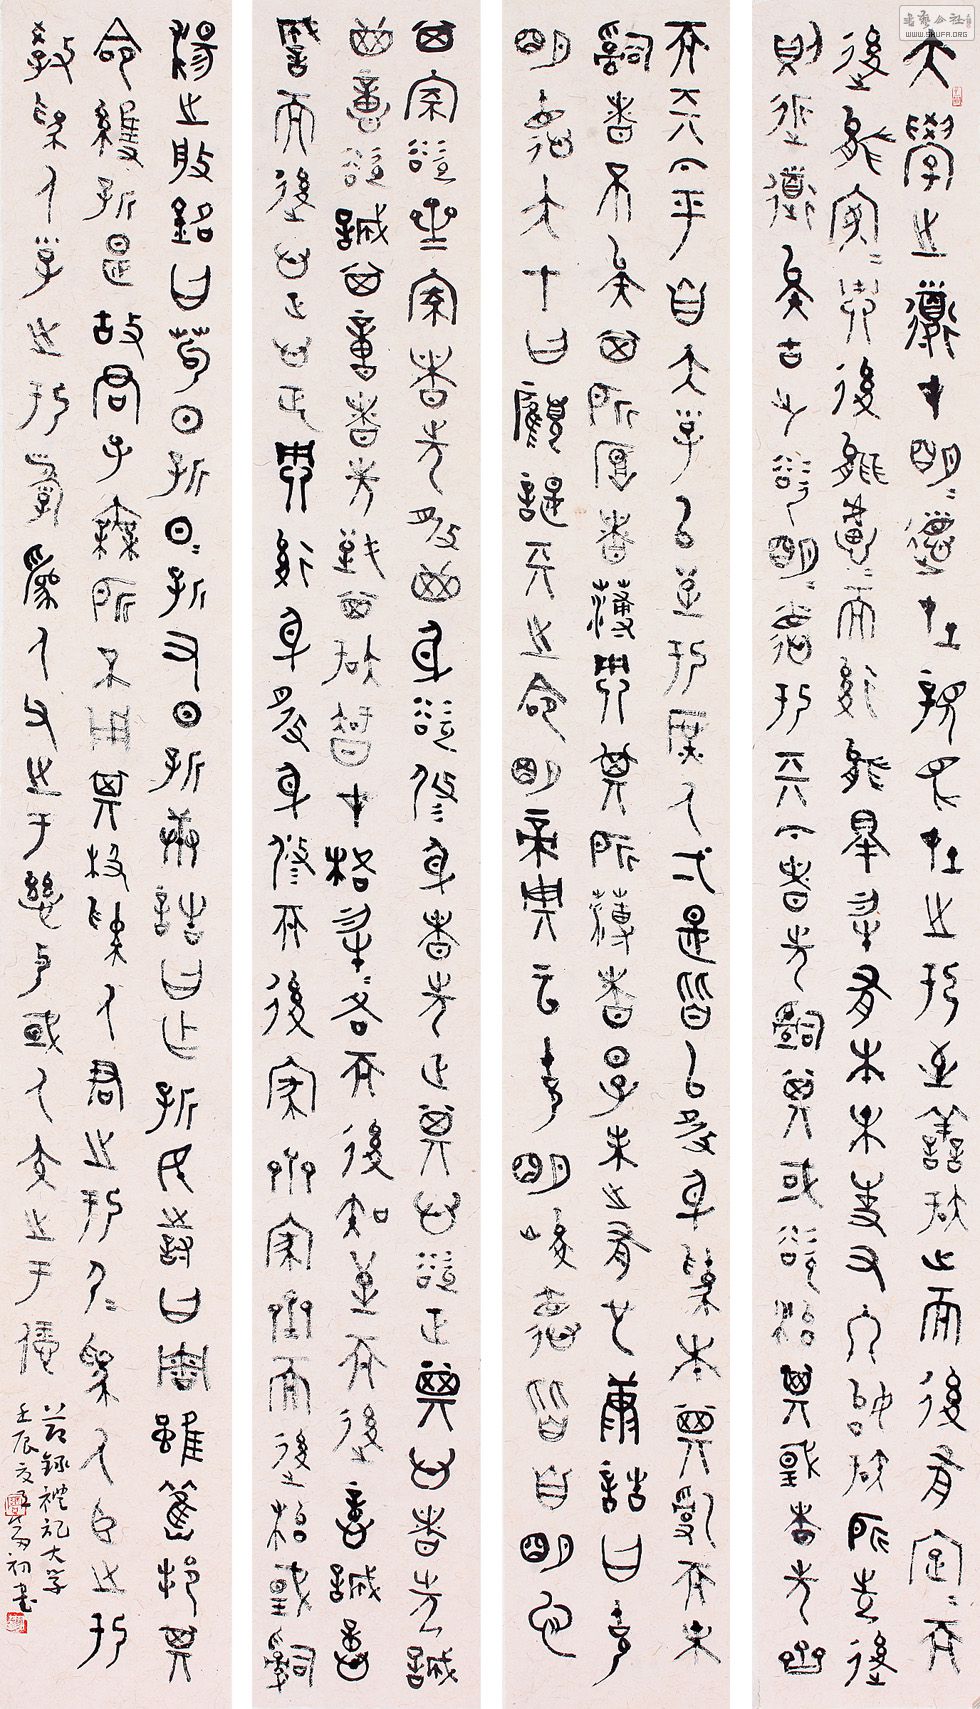 大學之道才明德在親民在止於至善知止而後有定而
後能安安而後能慮慮而後能得物有本末事又終始知所先後
則近道矣古之欲明明德於天下者先治其國欲治其國者先齊
其家欲齊其家者先修其身欲修其身者先正其心欲正其心者先誠
其意欲誠其意者先致其知致知才格物物格而後知至而後意誠意
誠而後心正心正而後身修身修而後家齊家齊而後國治
而天下平自天子以至於庶人壹是皆以修身為本其亂而末
治者不矣其所厚者薄而其所薄者厚未之有也康誥曰克
明德大甲曰顧諟天之命明帝典云克明峻德皆自明也
湯之盤銘曰苟日新日日新又日新康誥曰作新民詩曰周雖舊邦其
命維新是故君子無所不用其極為人君止於仁為人臣止於
敬為人子止於孝為人父止於慈與國人交止於信
節錄禮記大學
壬辰夏初書
書法公社
WWW.SHUFA.ORG